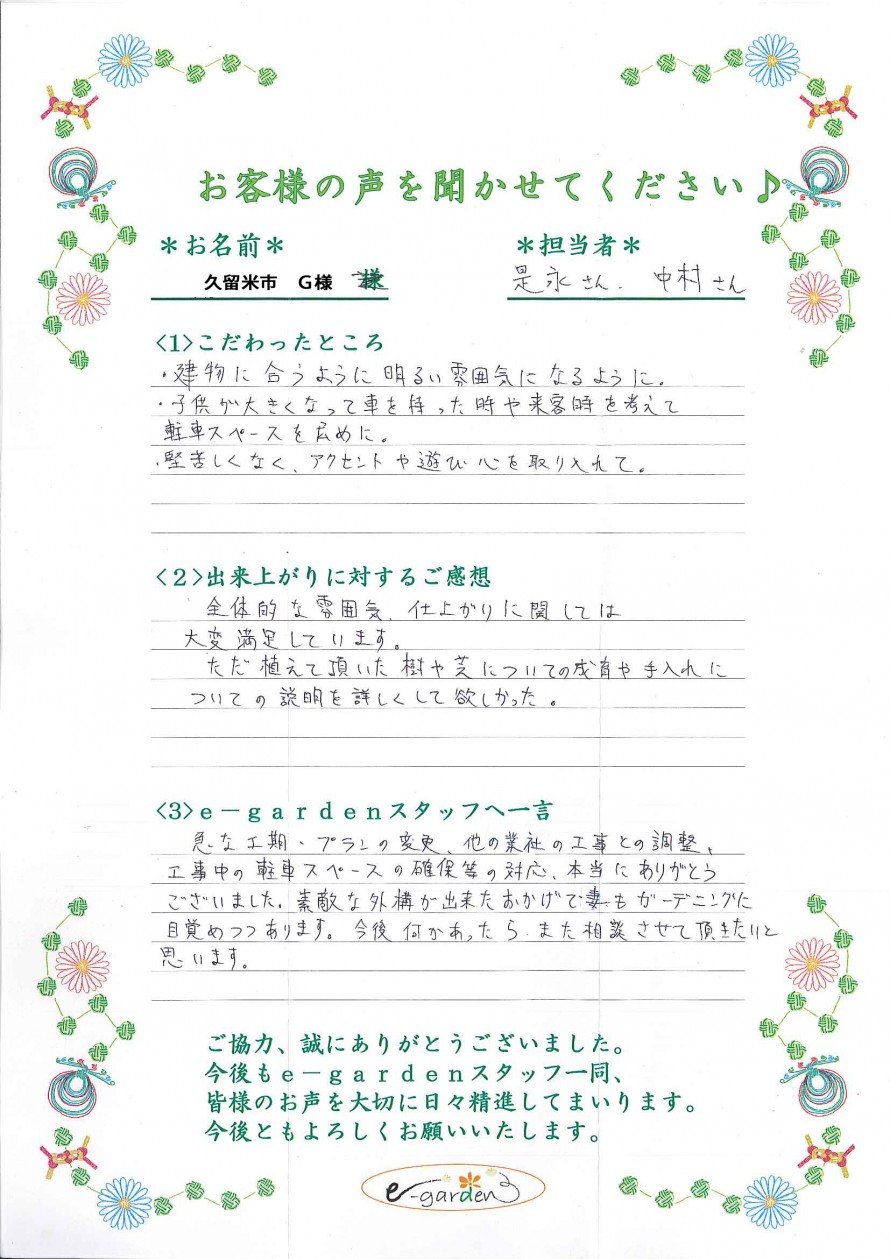 お客様の声を聞かせてください♪
＊お名前＊
＊担当者＊
久留米市　G様　様
是永さん、中村さん
<1>こだわったところ
・建物に合うように明るい雰囲気になるように。
・子供が大きくなって車を持った時や来客時を考えて
駐車スペースを広めに。
・堅苦しくなく、アクセントや遊び心を取り入れて。
<２>出来上がりに対するご感想
全体的な雰囲気、仕上がりに関しては
大変満足しています。
ただ植えて頂いた樹や芝についての成育や手入れに
ついての説明を詳しくして欲しかった。
<3>ｅ－ｇａｒｄｅｎスタッフへ一言
急な工期・プランの変更、他の業社の工事との調整、
工事中の駐車スペースの確保等の対応、本当にありがとう
ございました。素敵な外構が出来たおかげで妻もガーデニングに
目覚めつつあります。今後何かあったら、また相談させて頂きたいと
思います。
ご協力、誠にありがとうございました。
今後もｅ－ｇａｒｄｅｎスタッフ一同、
皆様のお声を大切に日々精進してまいります。
今後ともよろしくお願いいたします。
e-garden